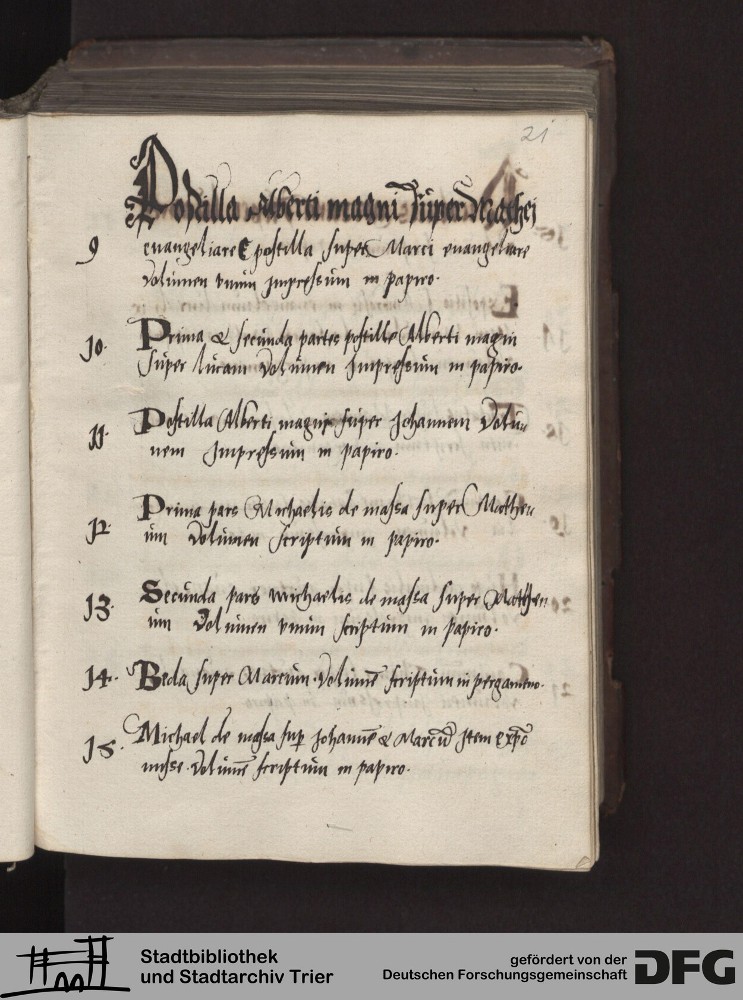 21
Postilla Alberti magni super Mathei
9 euangeliare Et postilla super Marci euangeliare
Volumen vnum impressum in papiro.
10. Prima & secunda partes postille Alberti magni
super lucam Volumen Impressum in papiro.
11. Postilla Alberti magni super Johannem Volu-
nem Impressum in papiro.
12. Prima pars Michaelis de massa super Mathe-
um Volumen scriptum in papiro.
13. Secunda pars michaelis de massa super Mathe-
um Volumen vnum scriptum in papiro.
14. Beda super Marcum. Volumē scriptum in pergameno.
15. Michael de massa suꝑ Johannē & Marcū Item expō
misse. Volumē scriptum in papiro.
Stadtbibliothek
und Stadtarchiv Trier
gefördert von der
Deutschen Forschungsgemeinschaft
DFG